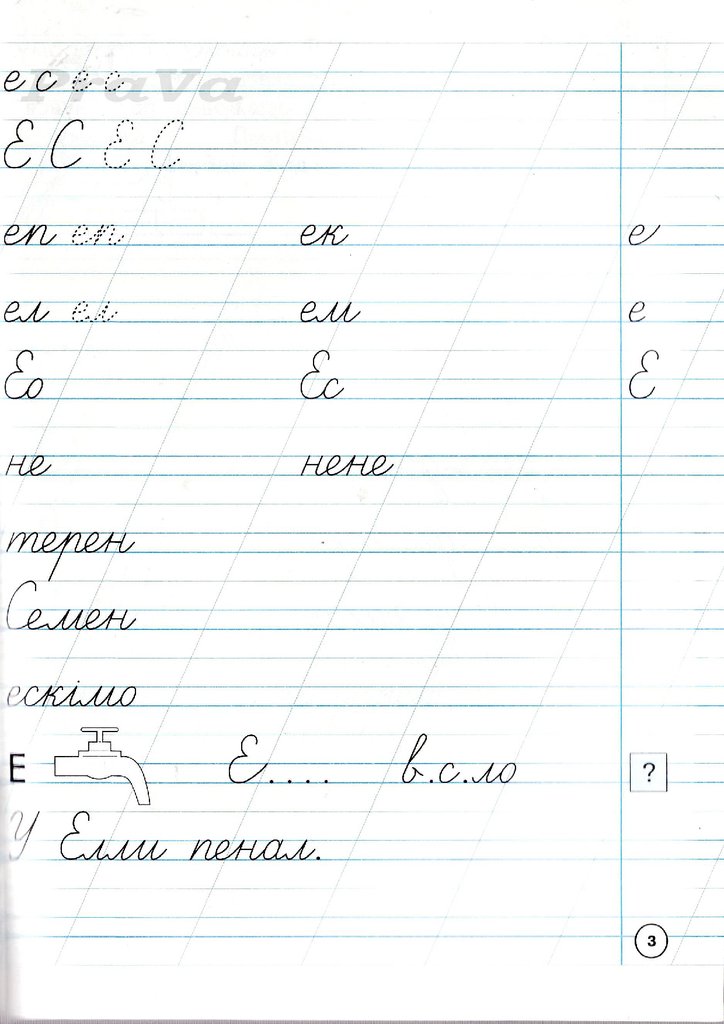 PraVa
е с е с
Е С Е С
еп еп ек е
ел ел ем е
Ео Ес Е
не нене
терен
Семен
ескімо
Е Е.... в.с.ло ?
У Елли пенал.
3